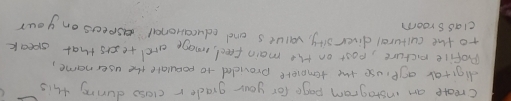 Create an instagram page for your grade r class during this
digital age, use the template provided to populate the user name,
Profile picture, post on the main feed, image and texts that speak
to the cultural diversity, values and educational aspects on your
classroom